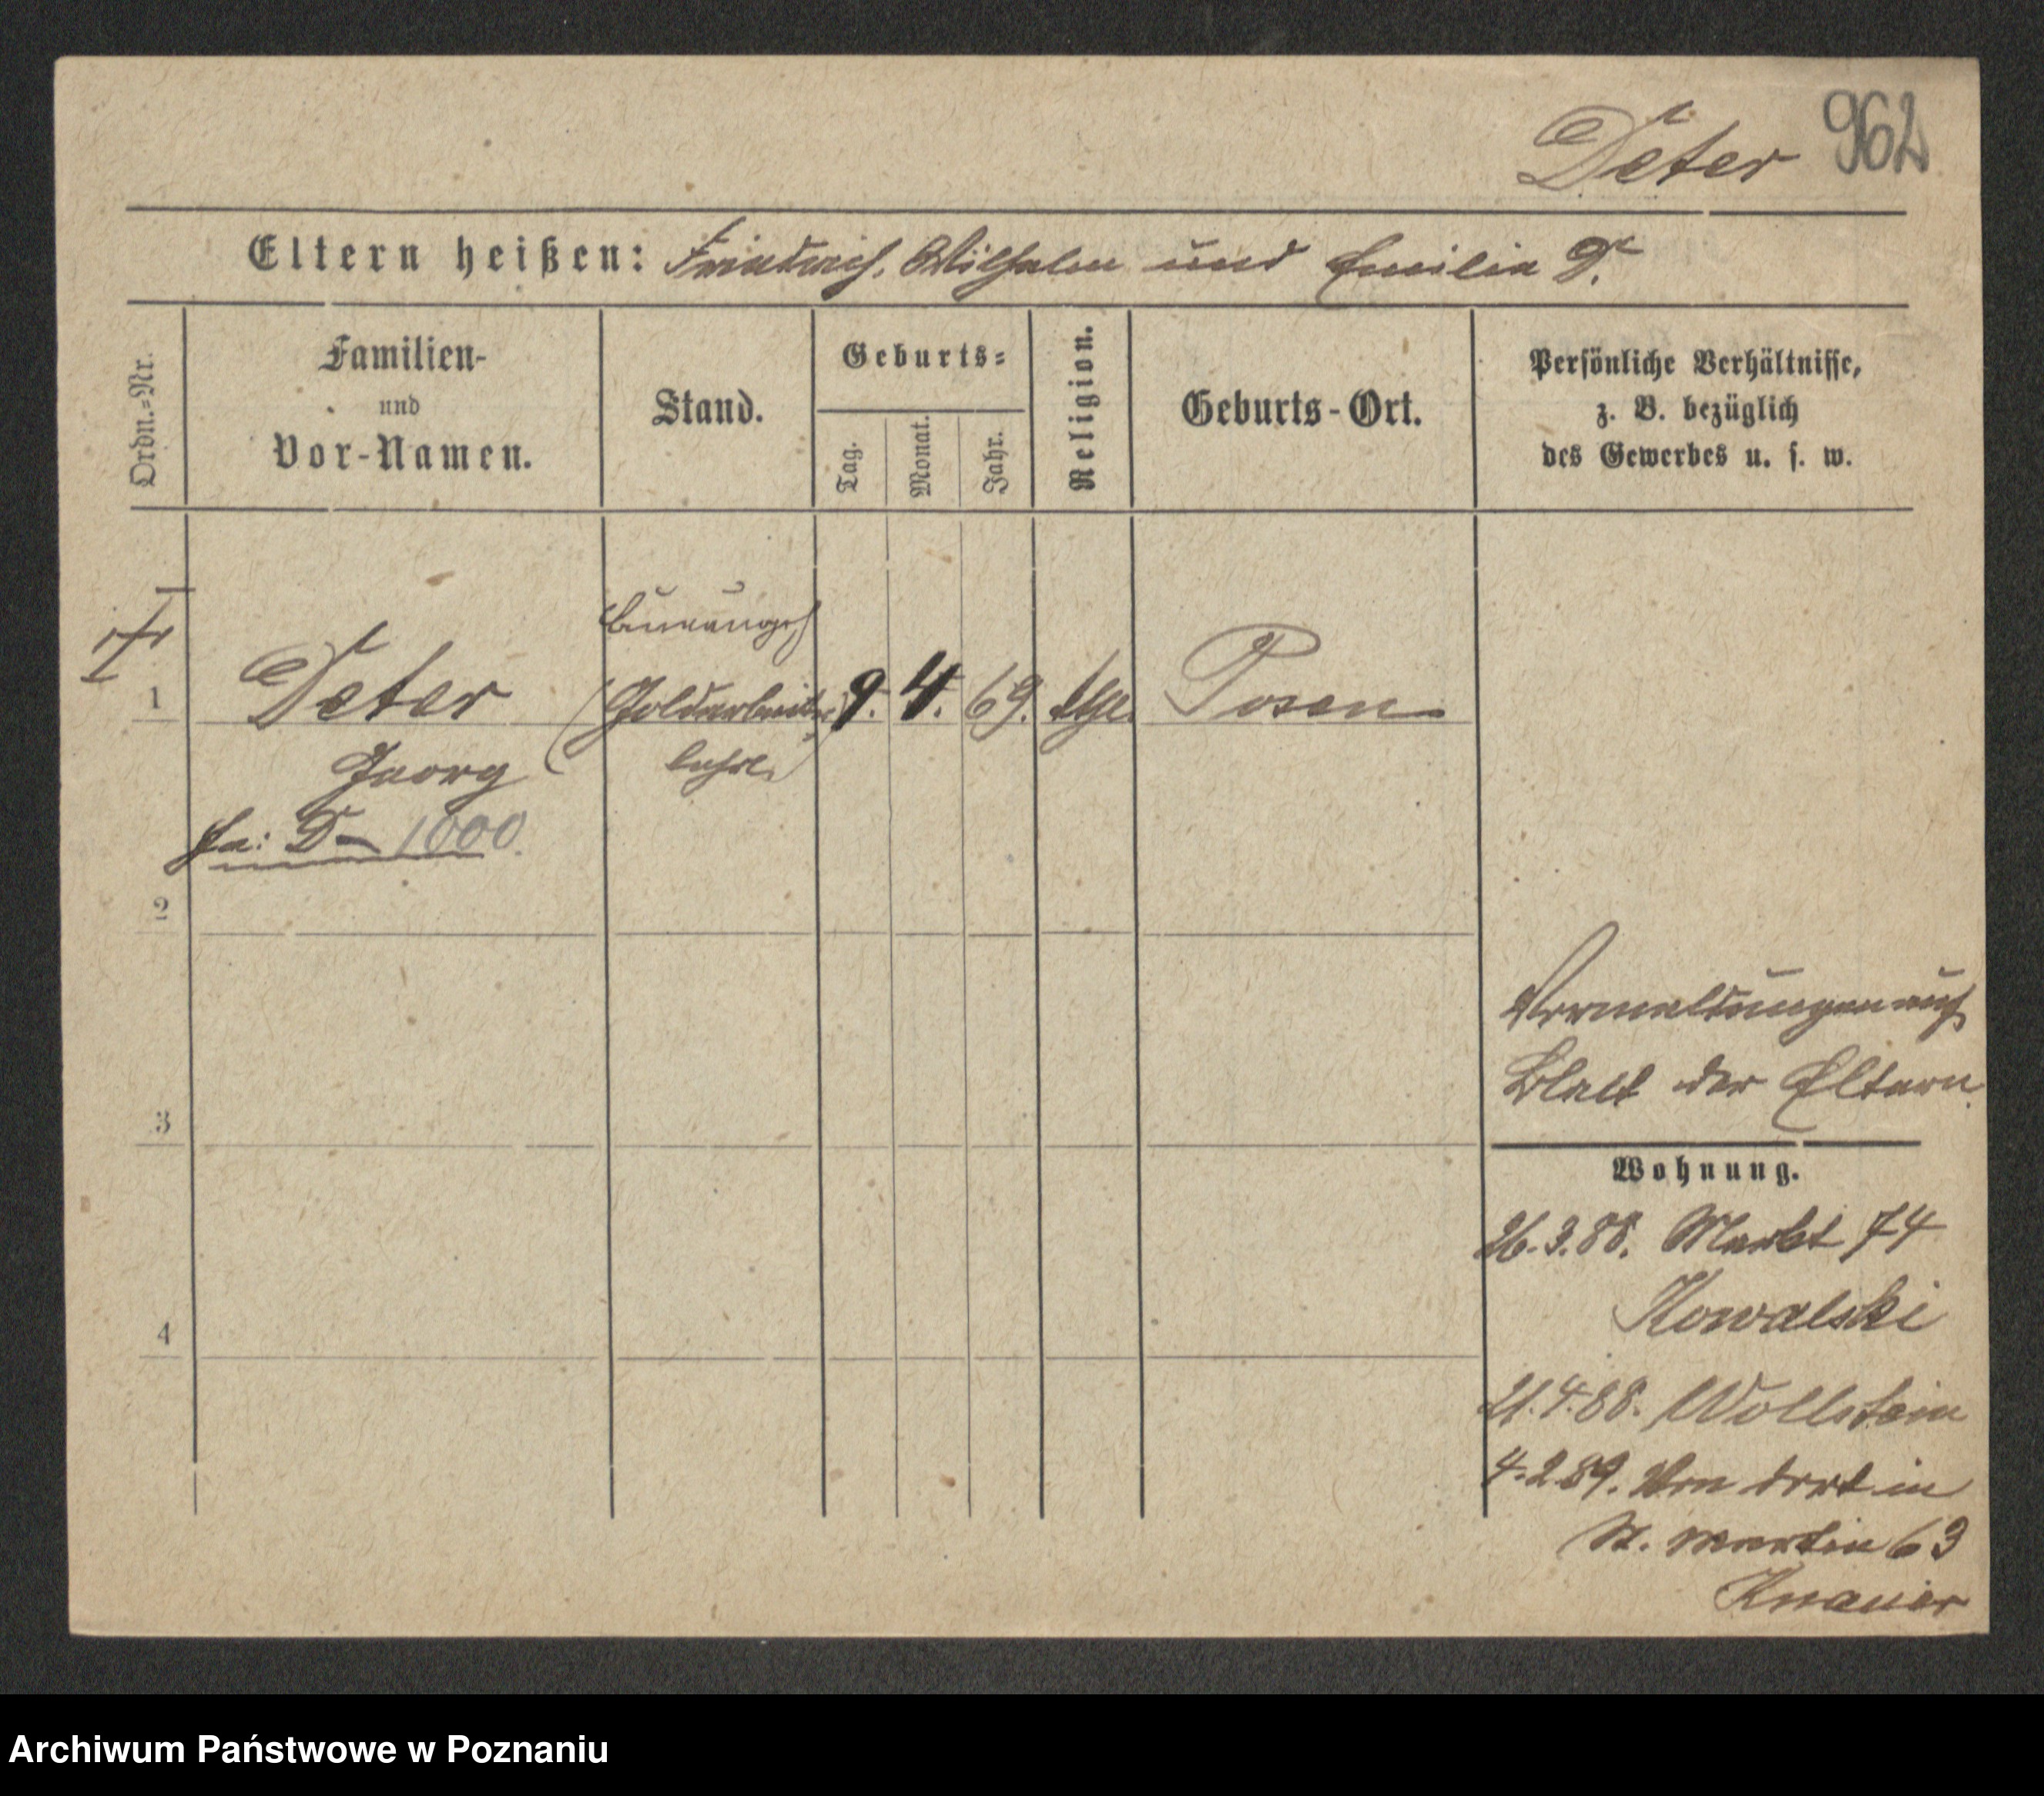 Deter 962
Eltern heißen: Friedrich, Wilhelm und Emilia D.
Ordn.=Nr.
Familien-
und
Vor-Namen.
Stand.
Geburts=
Tag.
Monat.
Jahr.
Religion.
Geburts-Ort.
Persönliche Verhältnisse,
z. B. bezüglich
des Gewerbes u. s. w.
1 Deter (Goldarbeiter 9. 4. 69. Posen
Georg lehrl.)
D 1000.
2
3
4
Vermeldungen auf
Blatt der Eltern.
Wohnung.
26.3.88. Markt 74
Kowalski
21.4.88. Wollstein
4.2.89. Von dort in
St. Martin 63
Knauer
Archiwum Państwowe w Poznaniu